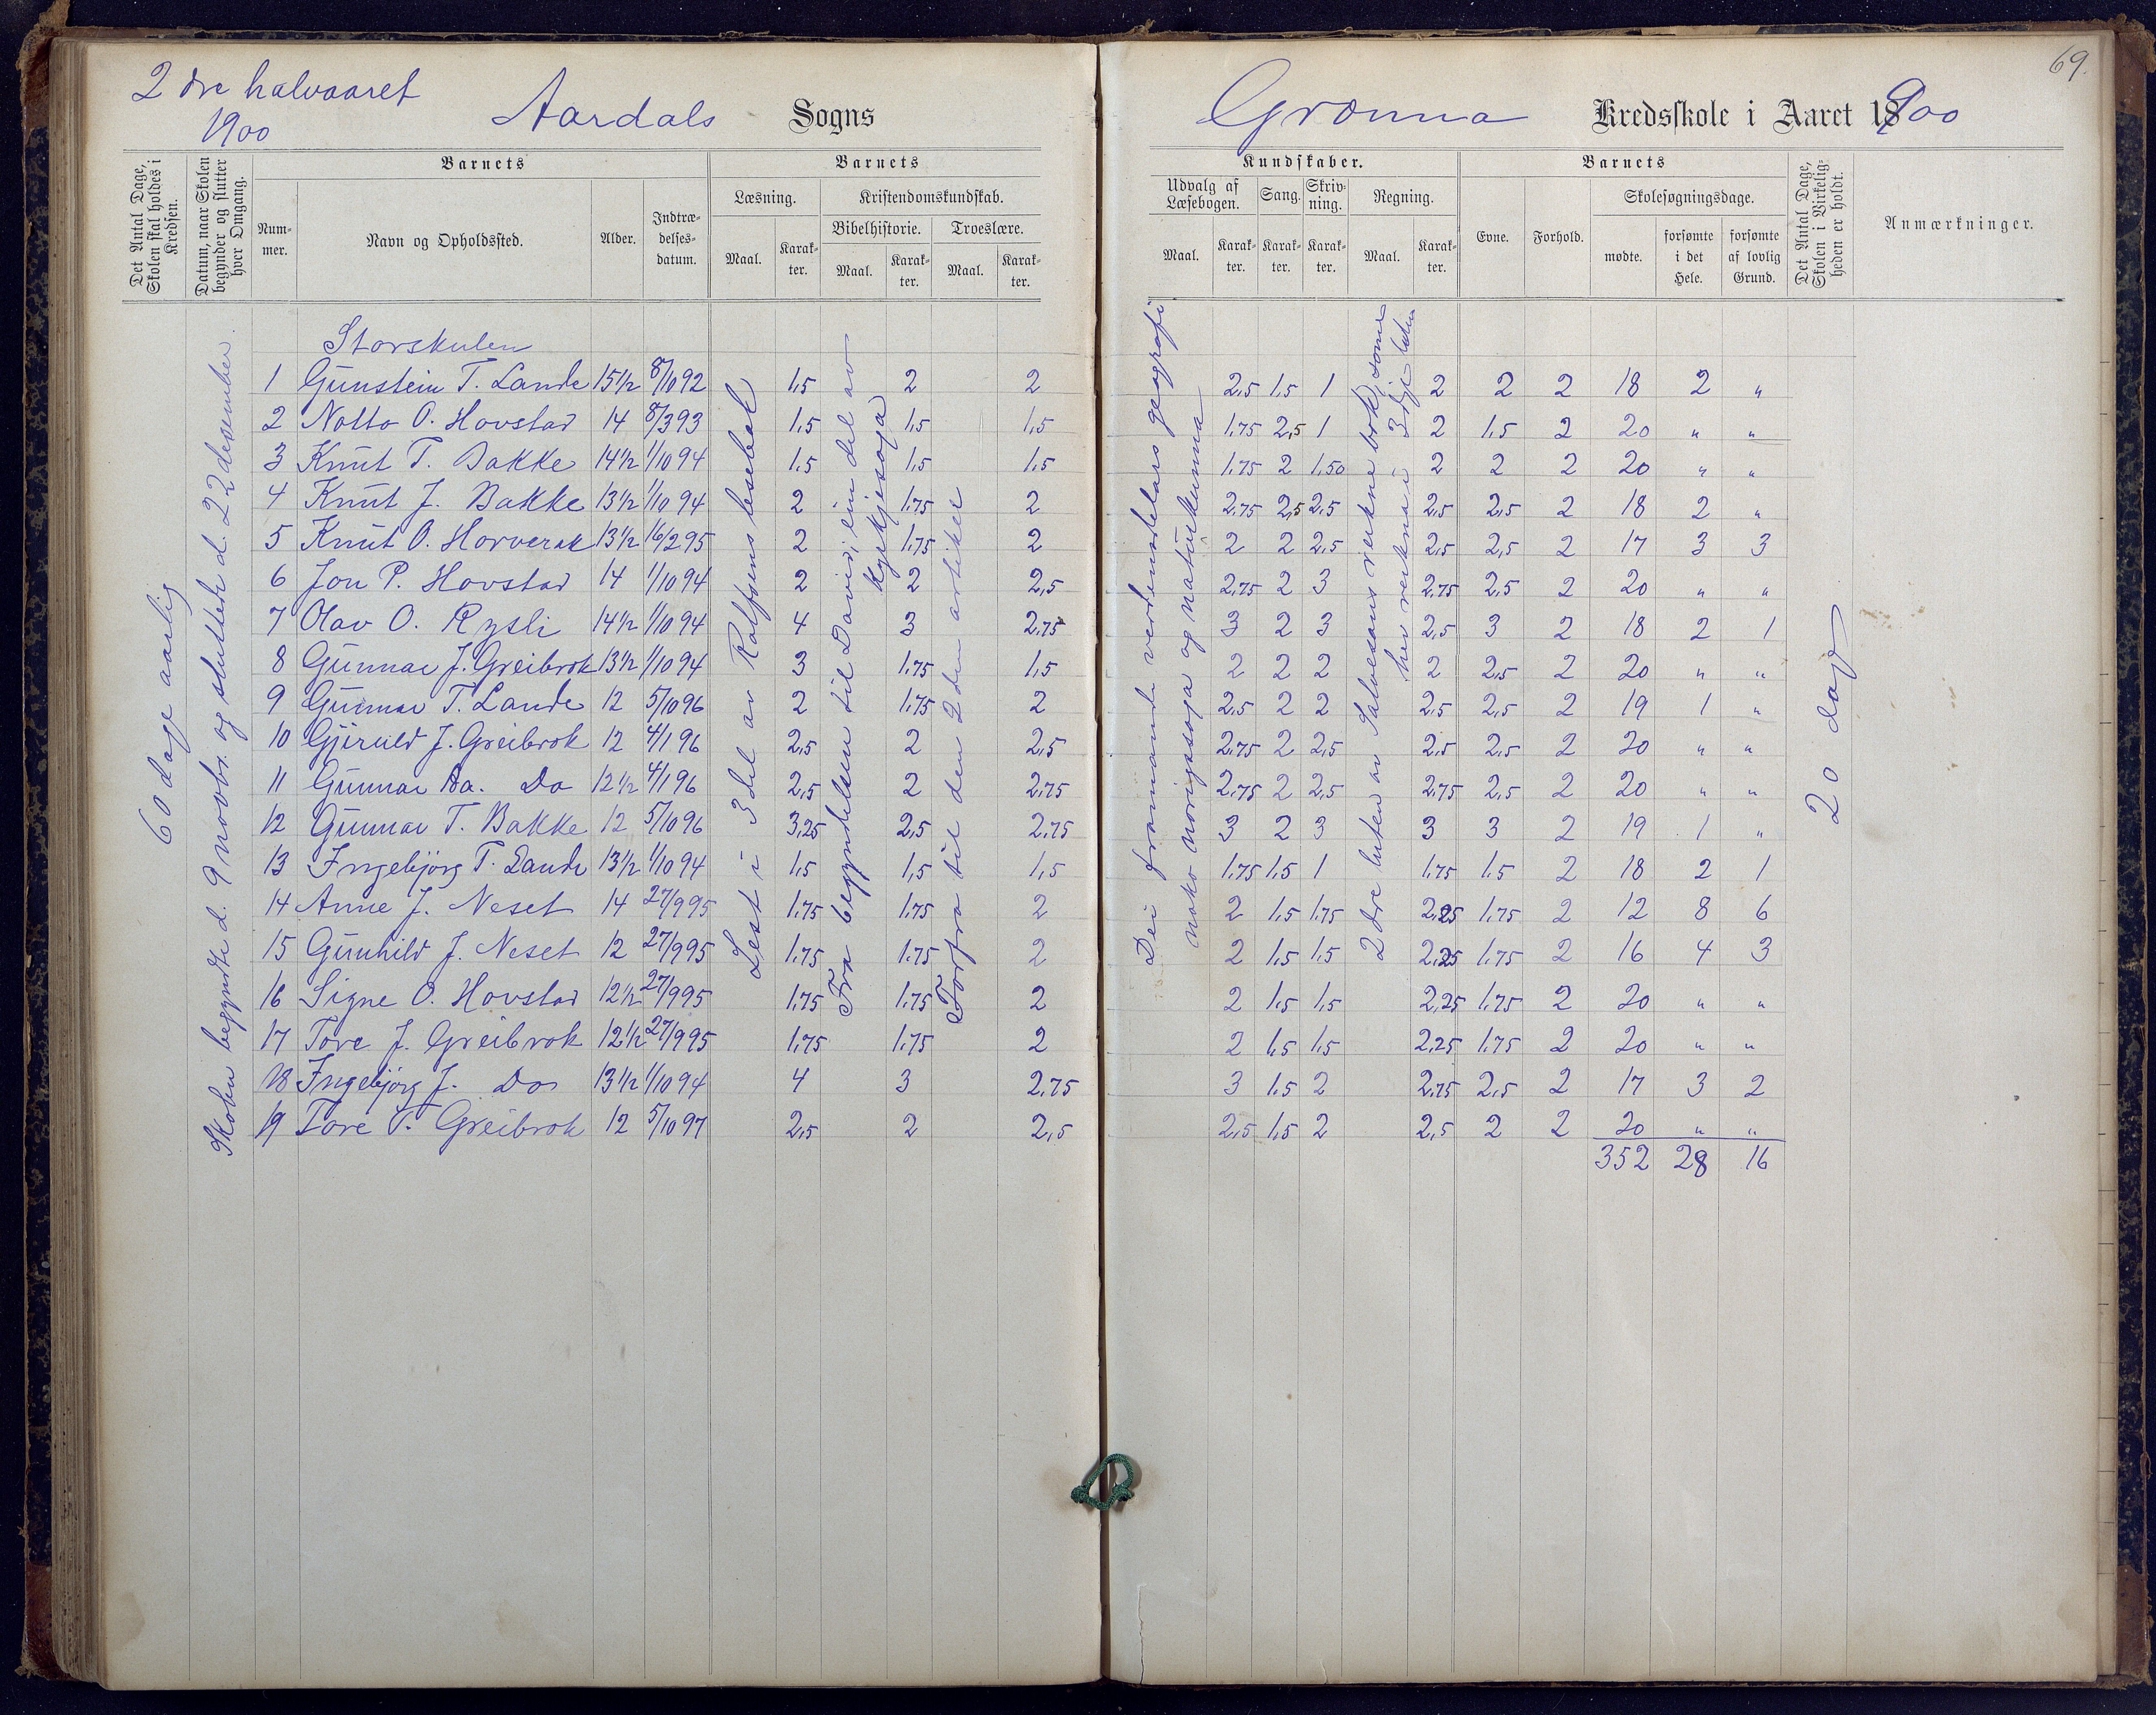 2 dre halvaaret
1900
Aardals Sogns
69.
Grønna Kredsskole i Aaret 1900
Det Antal Dage, Skolen skal holdes i Kredsen.
Datum, naar Skolen begynder og slutter hver Omgang.
Barnets
Num-
mer.
Navn og Opholdssted.
Alder.
Indtræ-
delses-
datum.
Barnets
Læsning.
Kristendomskundskab.
Bibelhistorie.
Troeslære.
Maal.
Karak-
ter.
Maal.
Karak-
ter.
Maal.
Karak-
ter.
Kundskaber.
Udvalg af
Læsebogen.
Sang.
Skriv-
ning.
Regning.
Maal.
Karak-
ter.
Karak-
ter.
Karak-
ter.
Maal.
Karak-
ter.
Barnets
Evne.
Forhold.
Skolesøgningsdage.
mødte.
forsømte
i det
Hele.
forsømte
af lovlig
Grund.
Det Antal Dage, Skolen i Virkelig-heden er holdt.
Anmærkninger.
60 dage aarlig
Skolen begyndte d. 9 novbr. og sluttede d. 22 desember.
Lest i 3 del av Rolfsens lesebok
Fra begyndelsen til David; ein del av
kyrkjesoga
Forfra til den 2den artikel
Dei framande verdensdelars geografi
noko norigssoga og naturkunna
2dre luten av Salvesons reknebok; some
hev rekna i 3dje luten
20 dage
Storskulen
1 Gunstein T. Lande 15 1/2 8/10 92 1,5 2 2 2,5 1,5 1 2 2 2 18 2 "
2 Notto O. Hovstad 14 8/3 93 1,5 1,5 1,5 1,75 2,5 1 2 1,5 2 20 " "
3 Knut T. Bakke 14 1/2 1/10 94 1,5 1,5 1,5 1,75 2 1,50 2 2 2 20 " "
4 Knut J. Bakke 13 1/2 1/10 94 2 1,75 2 2,75 2,5 2,5 2,5 2,5 2 18 2 "
5 Knut O. Horverak 13 1/2 16/2 95 2 1,75 2 2 2 2,5 2,5 2,5 2 17 3 3
6 Jon P. Hovstad 14 1/10 94 2 2 2,5 2,75 2 3 2,75 2,5 2 20 " "
7 Olav O. Rysli 14 1/2 1/10 94 4 3 2,75 3 2 3 2,5 3 2 18 2 1
8 Gunnar J. Greibrok 13 1/2 1/10 94 3 1,75 1,5 2 2 2 2 2,5 2 20 " "
9 Gunnar T. Lande 12 5/10 96 2 1,75 2 2,5 2 2 2,5 2,5 2 19 1 "
10 Gjeruld J. Greibrok 12 4/1 96 2,5 2 2,5 2,75 2 2,5 2,5 2,5 2 20 " "
11 Gunnar Aa. Do 12 1/2 4/1 96 2,5 2 2,75 2,75 2 2,5 2,75 2,5 2 20 " "
12 Gunnar T. Bakke 12 5/10 96 3,25 2,5 2,75 3 2 3 3 3 2 19 1 "
13 Ingebjörg T. Lande 13 1/2 1/10 94 1,5 1,5 1,5 1,75 1,5 1 1,75 1,5 2 18 2 1
14 Anne J. Neset 14 27/9 95 1,75 1,75 2 2 1,5 1,75 2,25 1,75 2 12 8 6
15 Gunhild J. Neset 12 27/9 95 1,75 1,75 2 2 1,5 1,5 2,25 1,75 2 16 4 3
16 Signe O. Hovstad 12 1/2 27/9 95 1,75 1,75 2 2 1,5 1,5 2,25 1,75 2 20 " "
17 Tore J. Greibrok 12 1/2 27/9 95 1,75 1,75 2 2 1,5 1,5 2,25 1,75 2 20 " "
18 Ingebjörg J. Do 13 1/2 1/10 94 4 3 2,75 3 1,5 2 2,75 2,5 2 17 3 2
19 Tore T. Greibrok 12 5/10 97 2,5 2 2,5 2,5 1,5 2 2,5 2 2 20 " "
352 28 16